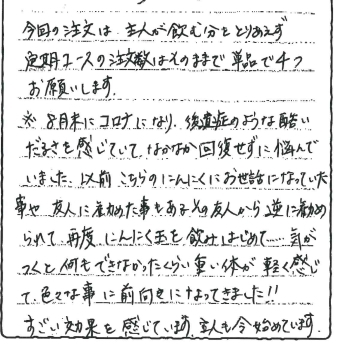 今回の注文は、主人が飲む分をとりあえず
定期コースの注文数はそのままで単品で4つ
お願いします。
※ 8月末にコロナになり、後遺症のような酷い
だるさを感じていて、なかなか回復せずに悩んで
いました。以前こちらのにんにくにお世話になっていた
事や、友人に勧めた事もあるその友人から逆に勧め
られて、再度にんにく玉を飲みはじめて……気が
つくと何もできなかったくらい重い体が軽く感じ
て、色々な事に前向きになってきました!!
すごい効果を感じています。主人も今始めています。